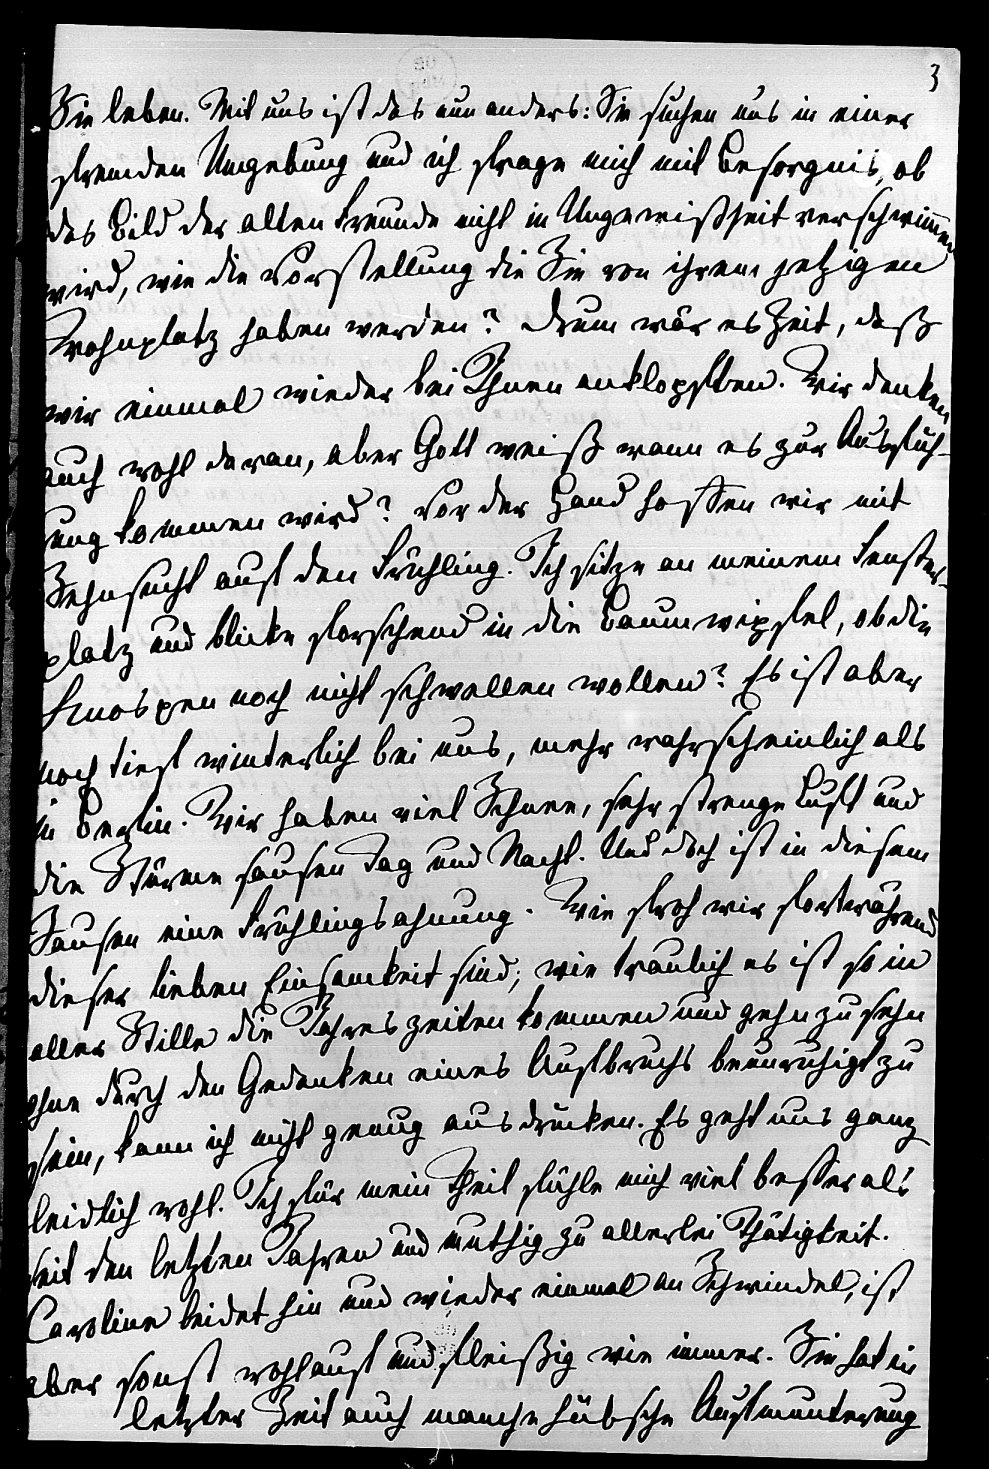 3
Sie leben. Mit uns ist das nun anders: Sie suchen uns in einer
fremden Umgebung und ich frage mich mit Besorgnis, ob
das Bild der alten Freunde nicht in Ungewißheit verschwimmen
wird, wie die Vorstellung die Sie von ihrem jetzigen
Wohnplatz haben werden? Drum wär es Zeit, daß
wir einmal wieder bei Ihnen anklopften. Wir denken
auch wohl daran, aber Gott weiß wann es zur Ausfüh-
rung kommen wird? Vor der Hand hoffen wir mit
Sehnsucht auf den Frühling. Ich sitze an meinem Fenster-
platz und blicke forschend in die Baumwipfel, ob die
Knospen noch nicht schwellen wollen? Es ist aber
noch tief winterlich bei uns, mehr wahrscheinlich als
in Berlin. Wir haben viel Schnee, sehr strenge Luft und
die Stürme sausen Tag und Nacht. Und doch ist in diesem
Sausen eine Frühlingsahnung. Wie froh wir fortwährend
dieser lieben Einsamkeit sind, wie traulich es ist so in
aller Stille die Jahreszeiten kommen und gehn zu sehn
ohne durch den Gedanken eines Aufbruchs beunruhigt zu
sein, kann ich nicht genug ausdrücken. Es geht uns ganz
leidlich wohl. Ich für mein Theil fühle mich viel besser als
seit den letzten Jahren und muthig zu allerlei Thätigkeit.
Caroline leidet hin und wieder einmal an Schwindel, ist
aber sonst wohlauf und fleißig wie immer. Sie hat in
letzter Zeit auch manche hübsche Aufmunterung